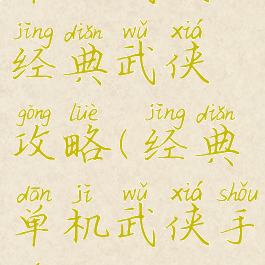 jīng diǎn wǔ xiá
经典武侠
gōng lüè jīng diǎn
攻略(经典
dān jī wǔ xiá shǒu
单机武侠手